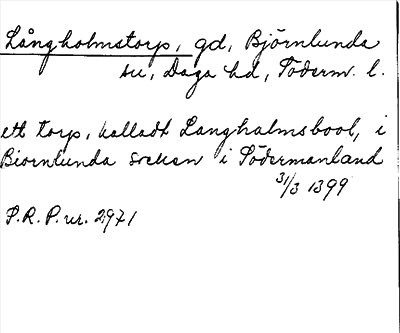 Långholmstorp, gd, Björnlunda
sn, Daga hd, Söderm. l.
ett torp, kalladt Langhalmsbool, i
Biornlunda socken i Södermanland
31/3 1399
S.R.P. nr. 2971